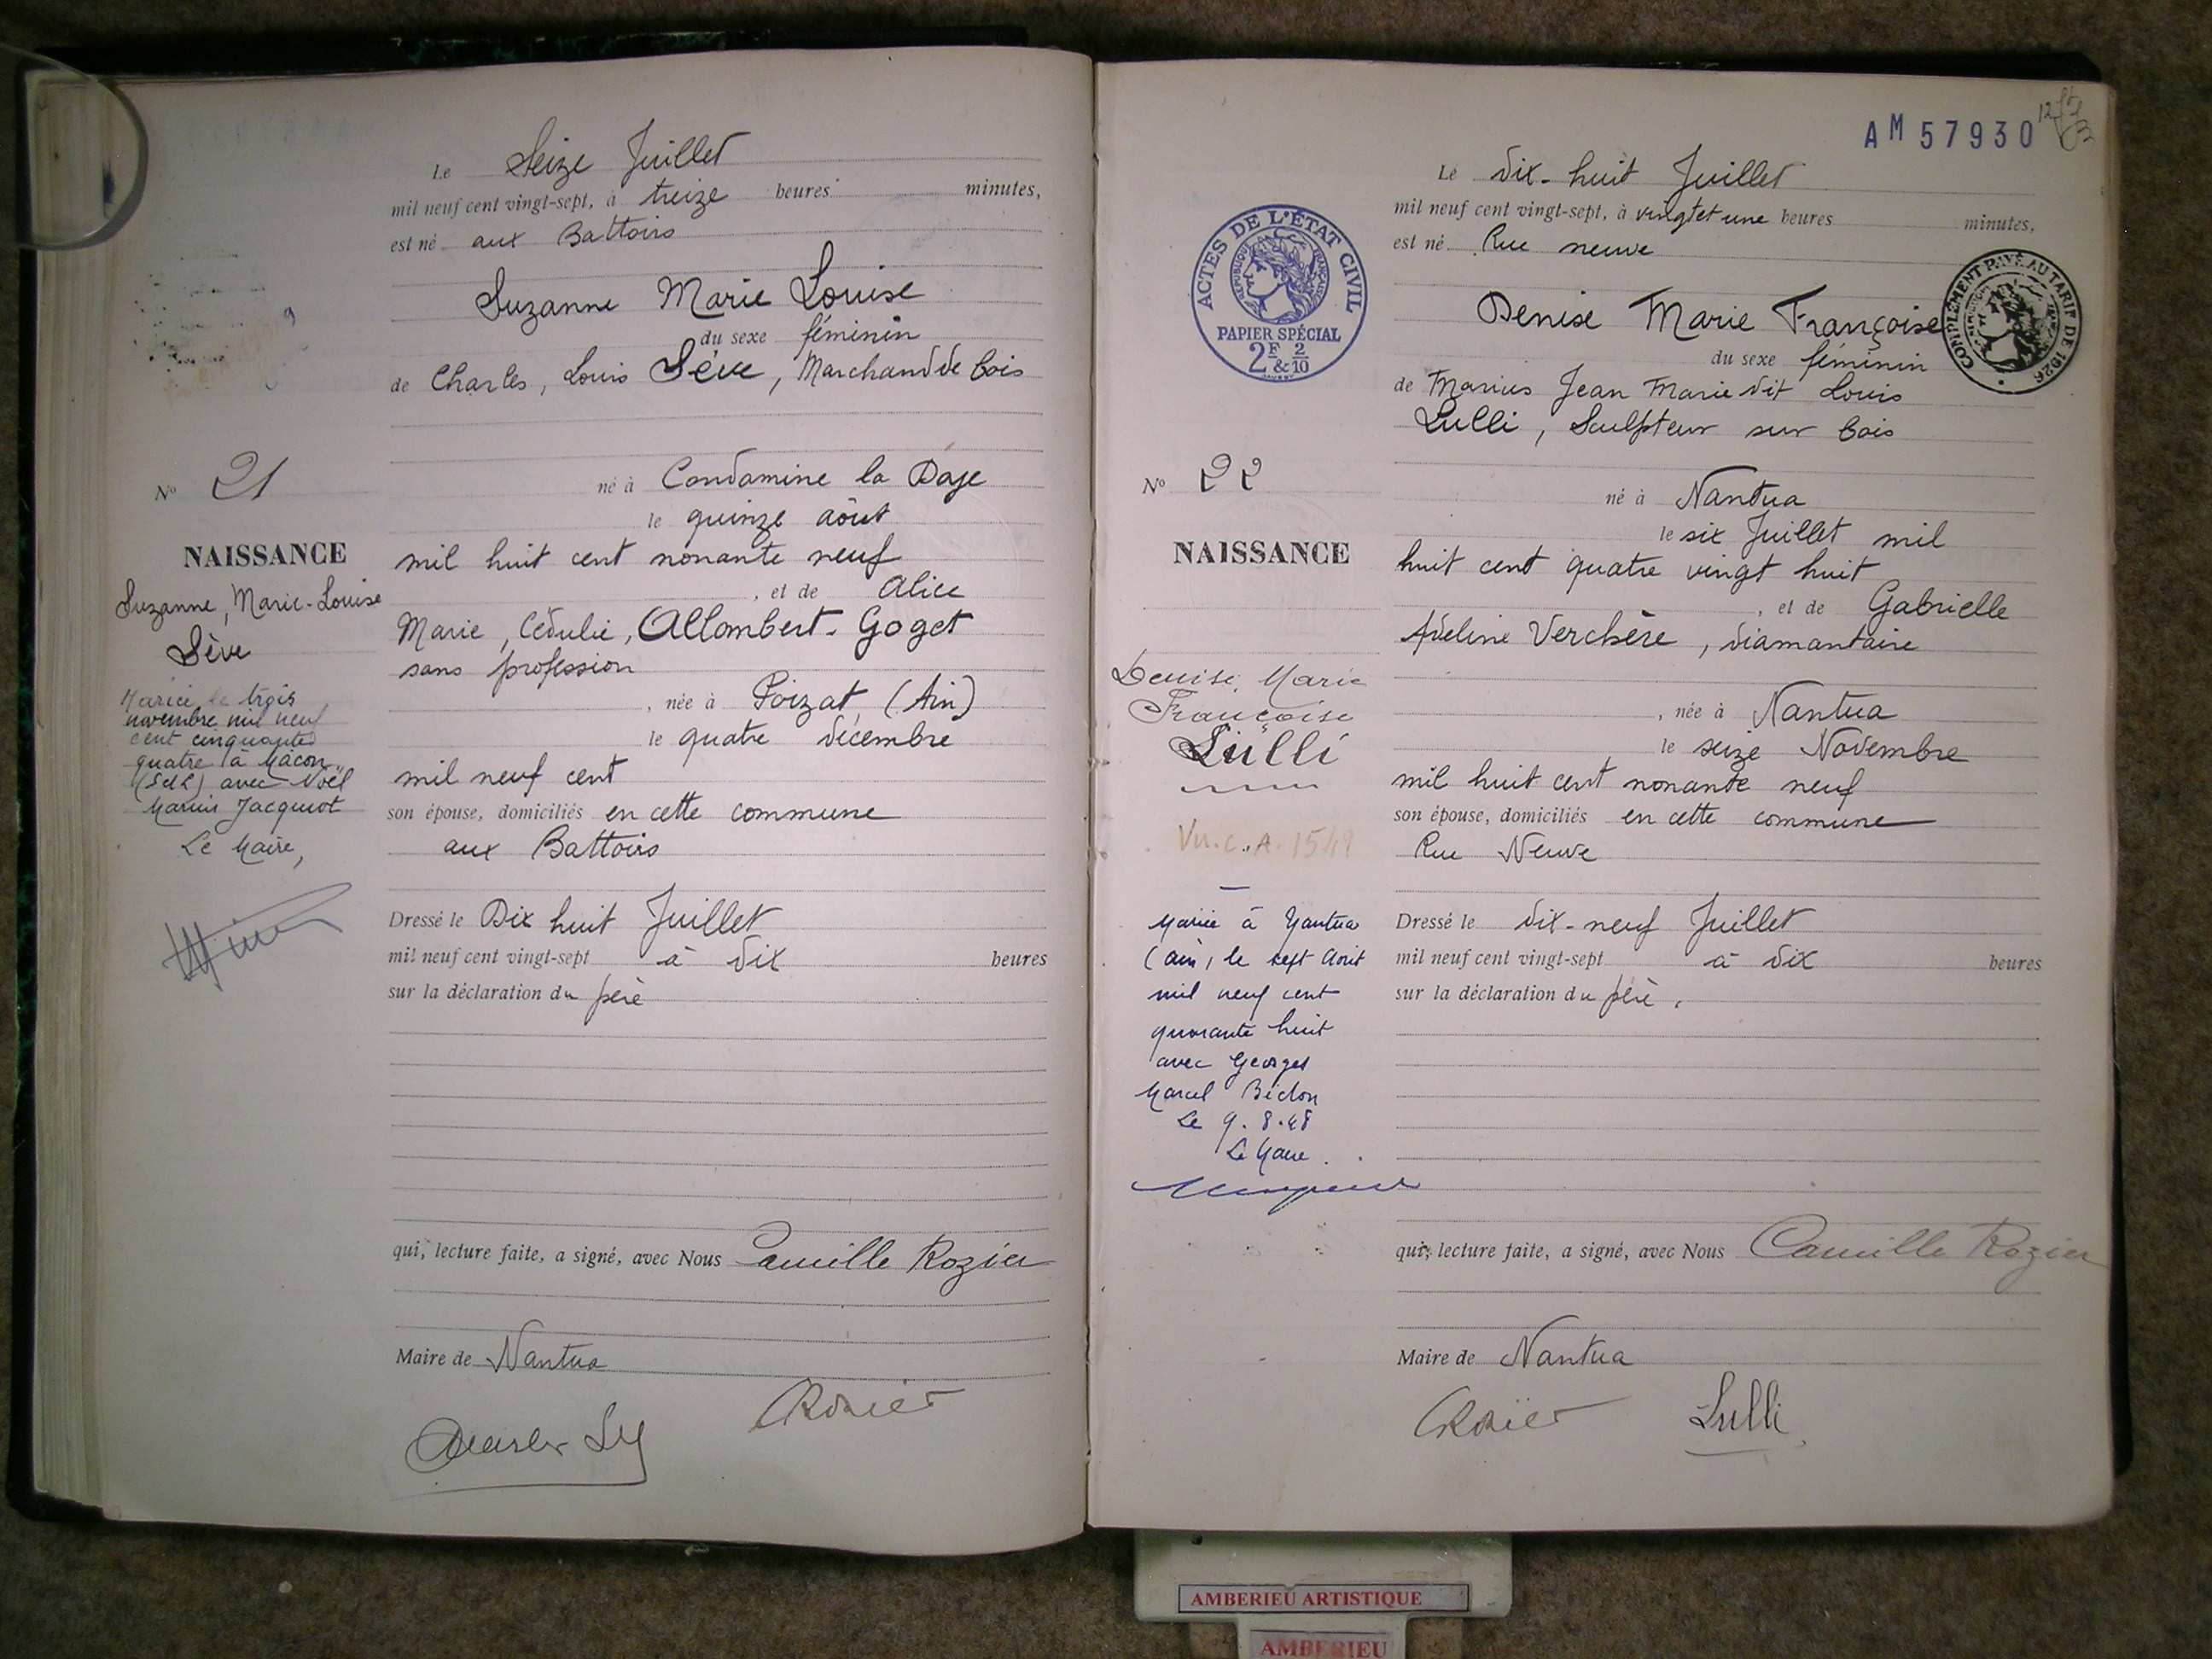 Le Seize Juillet
mil neuf cent vingt-sept, à treize heures minutes,
est né aux Battoirs
Suzanne Marie Louise
du sexe féminin
de Charles, Louis Sève, Marchand de bois
né à Condamine la Doye
le quinze août
mil huit cent nonante neuf
, et de Alice
Marie, Cédulie, Allombert-Goget
sans profession
, née à Poizat (Ain)
le quatre décembre
mil neuf cent
son épouse, domiciliés en cette commune
aux Battoirs
Dressé le Dix huit Juillet
mil neuf cent vingt-sept à dix heures
sur la déclaration du père
qui, lecture faite, a signé, avec Nous Camille Rozier
Maire de Nantua
CRozier
N° 21
NAISSANCE
Suzanne, Marie-Louise
Sève
Mariée le trois
novembre mil neuf
cent cinquante
quatre à Mâcon
(S&L) avec Noël
Marius Jacquot
Le Maire,
AM 57930
Le dix-huit Juillet
mil neuf cent vingt-sept, à vingt et une heures minutes,
est né Rue neuve
Denise Marie Françoise
du sexe féminin
de Marius Jean Marie dit Louis
Lulli, Sculpteur sur bois
né à Nantua
le six Juillet mil
huit cent quatre vingt huit
, et de Gabrielle
Adeline Verchère, diamantaire
, née à Nantua
le seize Novembre
mil huit cent nonante neuf
son épouse, domiciliés en cette commune
Rue Neuve
Dressé le dix-neuf Juillet
mil neuf cent vingt-sept à dix heures
sur la déclaration du père,
qui, lecture faite, a signé, avec Nous Camille Rozier
Maire de Nantua
CRozier Lulli
ACTES DE L'ÉTAT CIVIL
RÉPUBLIQUE FRANÇAISE
PAPIER SPÉCIAL
2F & 2/10
COMPLÉMENT PAYÉ AU TARIF DE 1926
N° 22
NAISSANCE
Denise, Marie
Françoise
Lulli
Mariée à Nantua
(Ain), le sept Août
mil neuf cent
quarante huit
avec Georges
Marcel Béclon
Le 9.8.48
Le Maire
AMBERIEU ARTISTIQUE
AMBERIEU